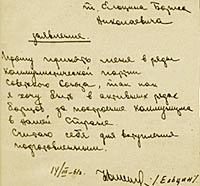 т. Ельцина Бориса
Николаевича
заявление.
Прошу принять меня в ряды
Коммунистической партии
Советского Союза, так как
я хочу быть в активных рядах
борцов за построение Коммунизма
в нашей стране.
Считаю себя для вступления
подготовленным.
/Ельцин/